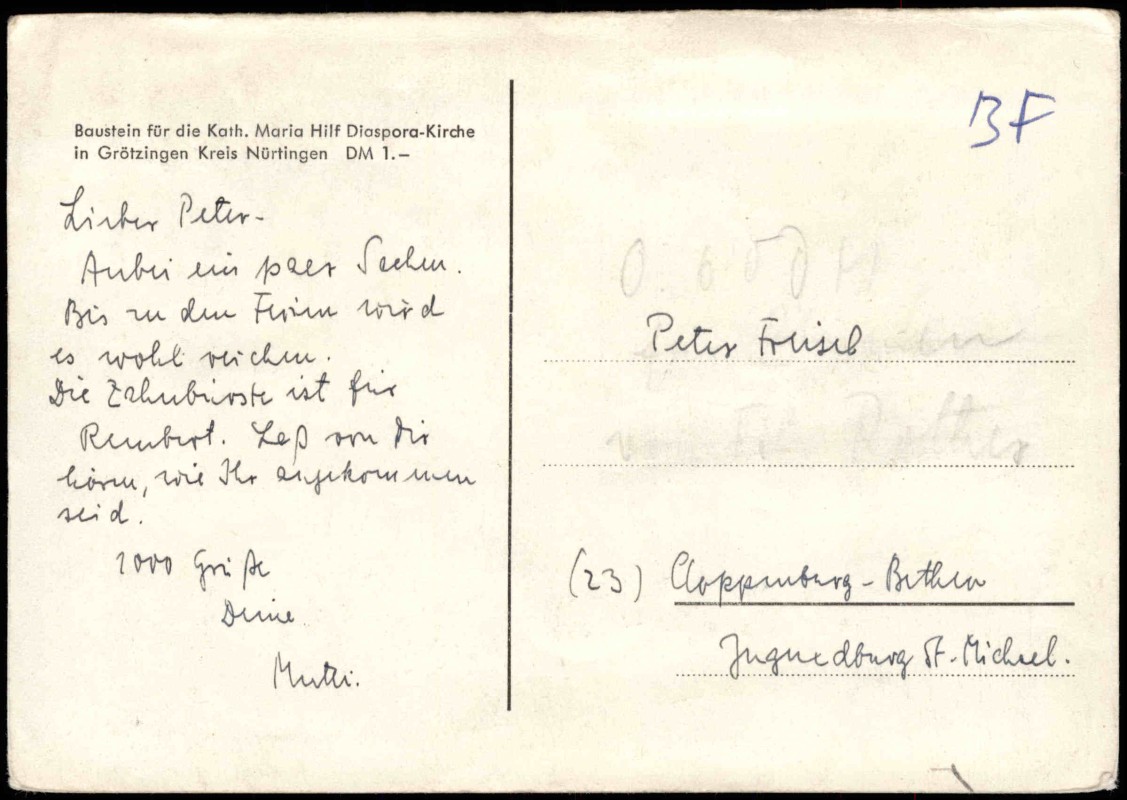 Baustein für die Kath. Maria Hilf Diaspora-Kirche
in Grötzingen Kreis Nürtingen DM 1.–
Lieber Peter-
Anbei ein paar Sachen.
Bis zu den Ferien wird
es wohl reichen.
Die Zahnbürste ist für
Rembert. Laß von Dir
hören, wie Ihr angekommen
seid.
1000 Grüße
Deine
Mutti.
BF
Peter
(23) Cloppenburg-Bethen
Jugendburg St. Michael.